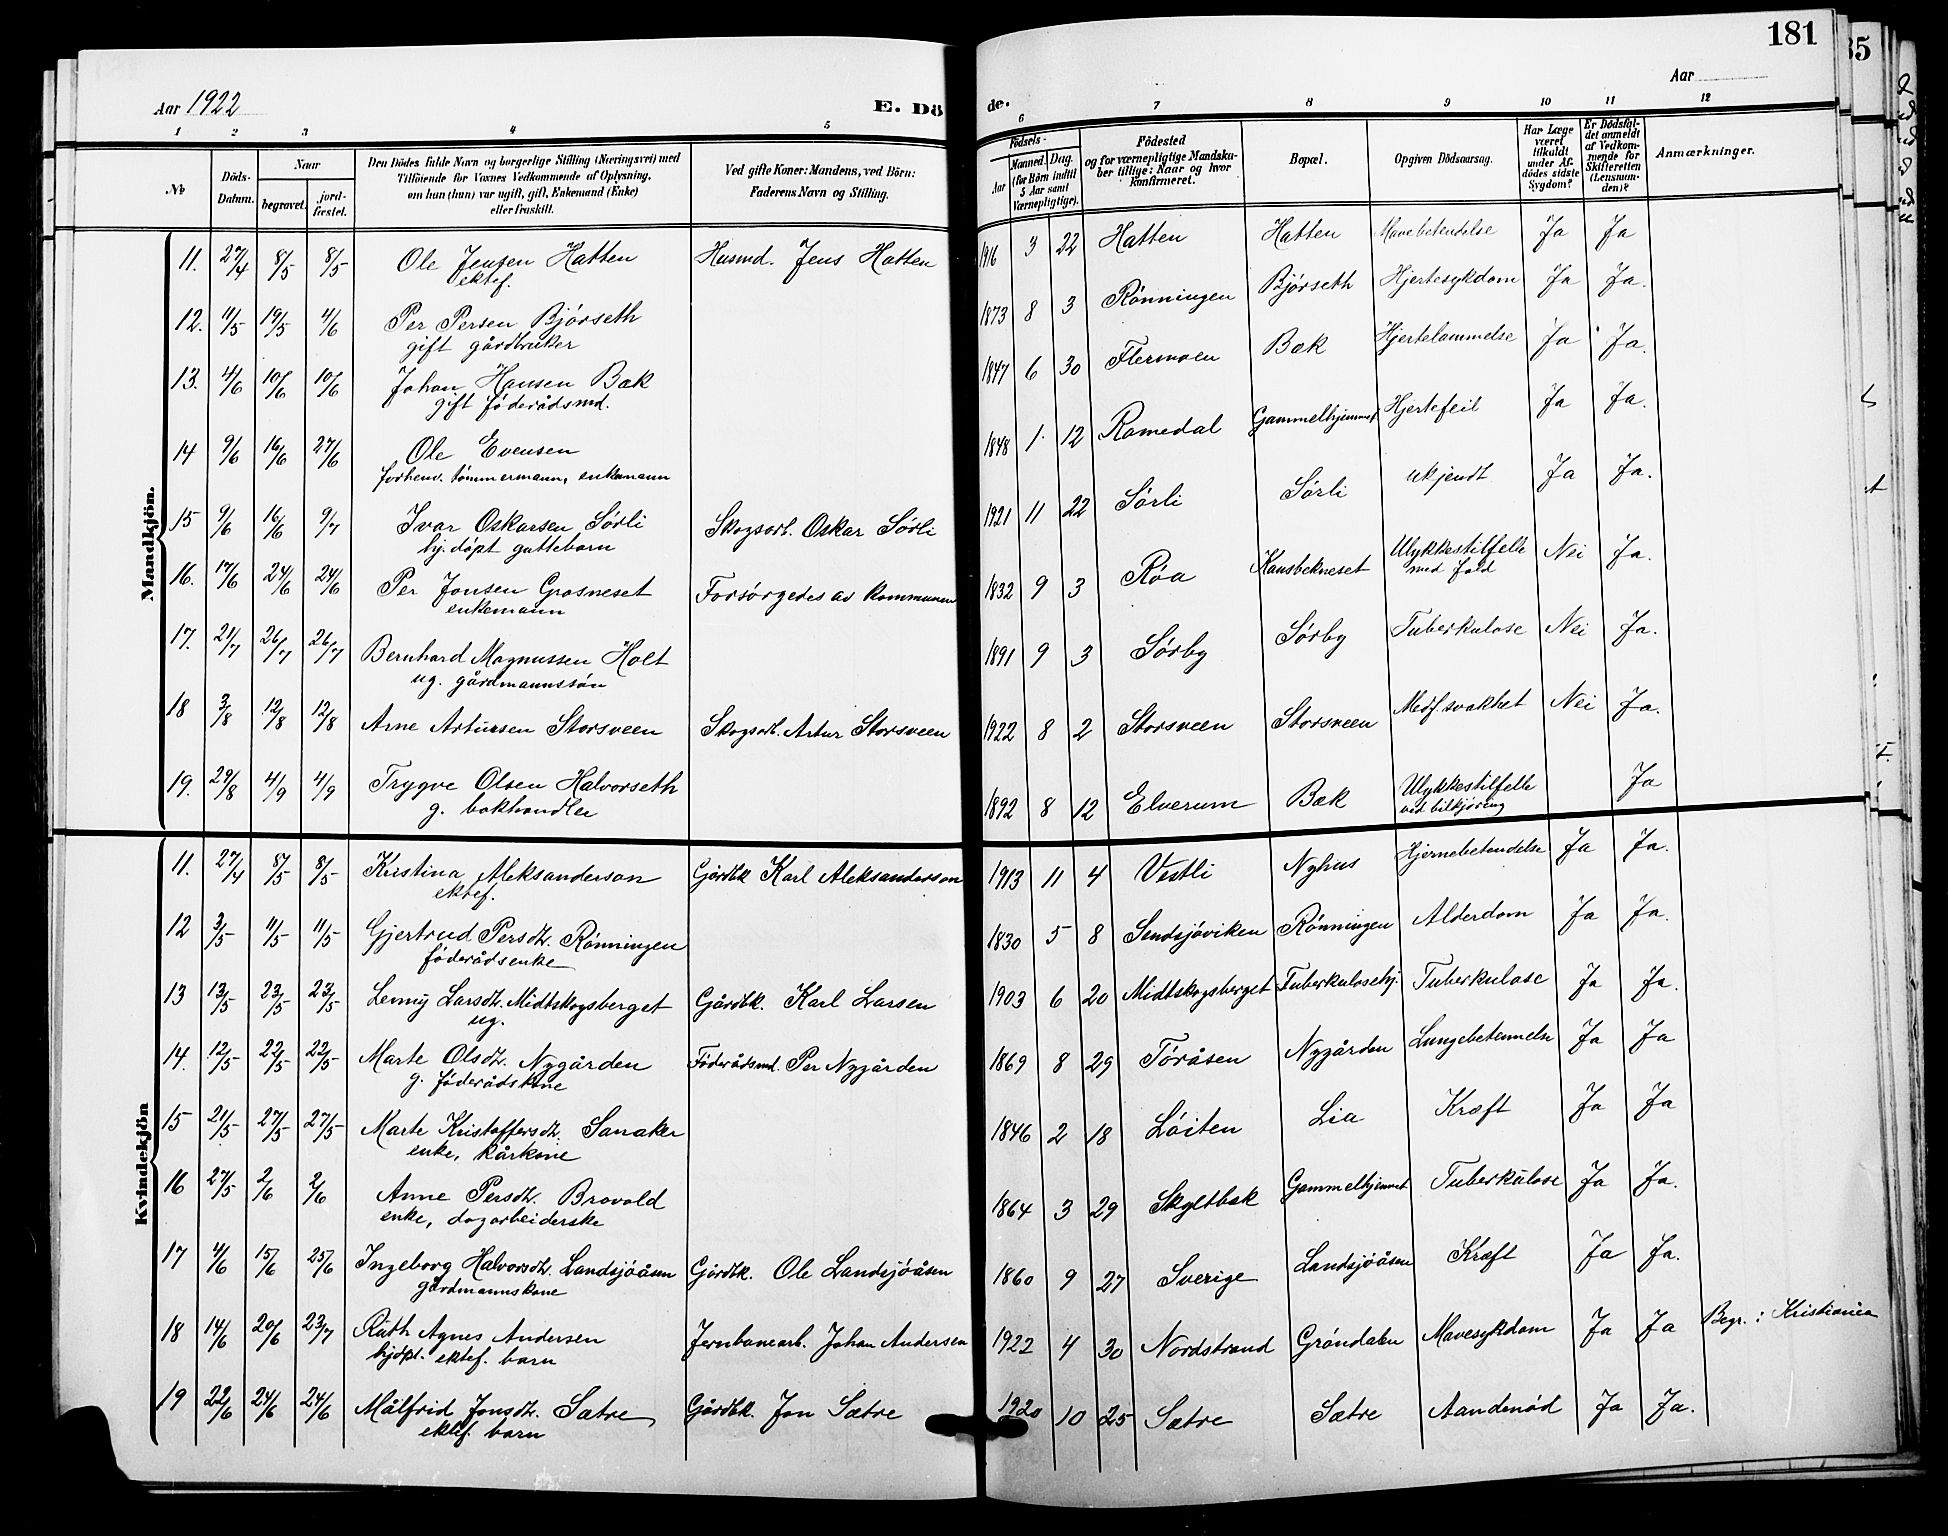 181
85
Aar 1922
E. Dö
de.
Aar
1 2 3 4 5 6 7 8 9 10 11 12
No
Döds-Datum.
Naar
begravet.
jord-fæstet.
Den Dödes fulde Navn og borgerlige Stilling (Næringsvei) med
Tilföiende for Voxnes Vedkommende af Oplysning,
om han (hun) var ugift, gift, Enkemand (Enke)
eller fraskilt.
Ved gifte Koner: Mandens, ved Börn:
Faderens Navn og Stilling.
Födsels-
Aar
Maaned. Dag.
(for Börn indtil
5 Aar samt
Værnepligtige).
Födested
og for værnepligtige Mandska-
ber tillige: Naar og hvor
konfirmeret.
Bopæl.
Opgiven Dödsaarsag.
Har Læge
været
tilkaldt
under Af-
dödes sidste
Sygdom?
Er Dödsfal-
det anmeldt
af Vedkom-
mende for
Skifteretten
(Lensman-
den)?
Anmærkninger.
Mandkjön.
11. 27/4 8/5 8/5 Ole Jensen Hatten Husmd. Jens Hatten 1916 3 22 Hatten Hatten Mavebetendelse Ja Ja
ektef.
12. 11/5 19/5 4/6 Per Persen Bjørseth 1873 8 3 Rønningen Bjørseth Hjertesykdom Ja Ja.
gift gårdbruker
13. 4/6 10/6 10/6 Johan Hansen Bæk 1847 6 30 Flermoen Bæk Hjertelammelse Ja Ja.
gift föderådsmd.
14 9/6 16/6 27/6 Ole Evensen 1848 1. 12 Romedal Gammelhjemmet Hjertefeil Ja Ja.
forhenv. tømmermann, enkemann
15 9/6 16/6 9/7 Ivar Oskarsen Sørli Skogsarb. Oskar Sørli 1921 11 22 Sørli Sørli ukjendt Ja Ja.
hj. døpt guttebarn
16. 17/6 24/6 24/6 Per Jonsen Grosneset Forsørgedes av kommunen 1832 9 3 Røa Kansbekneset Ulykkestilfelle Nei Ja.
enkemann med fald
17. 21/7 26/7 26/7 Bernhard Magnussen Holt 1891 9 3 Sørby Sørby Tuberkulose Nei Ja.
ug. gårdmannssøn
18 3/8 12/8 12/8 Arne Artursen Storsveen Skogsarb. Artur Storsveen 1922 8 2 Storsveen Storsveen Medf. svakhet Nei Ja.
19. 29/8 4/9 4/9 Trygve Olsen Halvorseth 1892 8 12 Elverum Bæk Ulykkestilfelle Ja
g. bokhandler ved bilkjøring
Kvindekjön
11. 27/4 8/5 8/5 Kristina Aleksanderson Gårdbk Karl Aleksanderson 1913 11 4 Vestli Nyhus Hjernebetendelse Ja Ja.
ektef.
12 3/5 11/5 11/5 Gjertrud Persdtr. Rønningen 1830 5 8 Sendsjøviken Rønningen Alderdom Ja Ja.
föderådsenke
13 13/5 23/5 23/5 Lenny Larsdtr. Midtskogsberget Gårdbk. Karl Larsen 1903 6 20 Midtskogsberget Tuberkulosehj. Tuberkulose Ja Ja.
ug.
14. 12/5 22/5 22/5 Marte Olsdtr. Nygården Föderådsmd. Per Nygården 1869 8 29 Tøråsen Nygården Lungebetennelse Ja Ja
g. föderådskone
15 21/5 27/5 27/5 Marte Kristoffersdtr. Sanaker 1846 2 18 Løiten Lia Kræft Ja Ja
enke, kårkone
16 27/5 2/6 2/6 Anne Persdtr. Brovold 1864 3 29 Skyltbæk Gammelhjemmet Tuberkulose Ja Ja.
enke, dagarbeiderske
17 4/6 15/6 25/6 Ingeborg Halvorsdtr. Landsjøåsen Gårdbk. Ole Landsjøåsen 1860 9 27 Sverige Landsjøåsen Kræft Ja Ja.
gårdmannskone
18 14/6 20/6 23/7 Ruth Agnes Andersen Jernbanearb. Johan Andersen 1922 4 30 Nordstrand Grøndalen Mavesykdom Ja Ja Begr. i Kristiania
hjdøpt. ektef. barn
19 22/6 24/6 24/6 Målfrid Jonsdtr. Sætre Gårdbk. Jon Sætre 1920 10 25 Sætre Sætre Aandenød Ja Ja.
ektef. barn